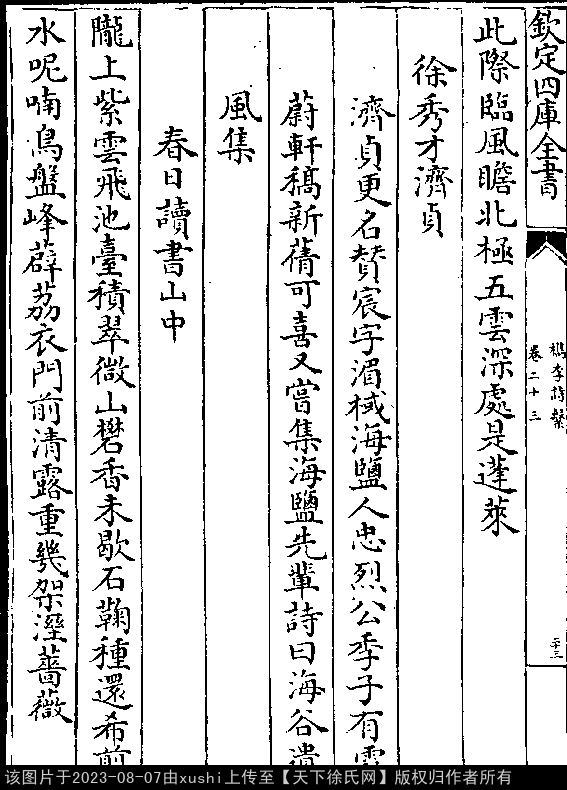 欽定四庫全書
檇李詩繫
卷二十三
二十三
此際臨風瞻北極五雲深處是蓬萊
徐秀才濟貞
濟貞更名賛宸字湄棫海鹽人忠烈公季子有
蔚軒稿新蒨可喜又嘗集海鹽先輩詩曰海谷遺
風集
春日讀書山中
隴上紫雲飛池臺積翠微山礬香未歇石鞠種還希前
水呢喃鳥盤峰薜荔衣門前清露重幾架溼薔薇
该图片于2023-08-07由xushi上传至【天下徐氏网】版权归原作者所有